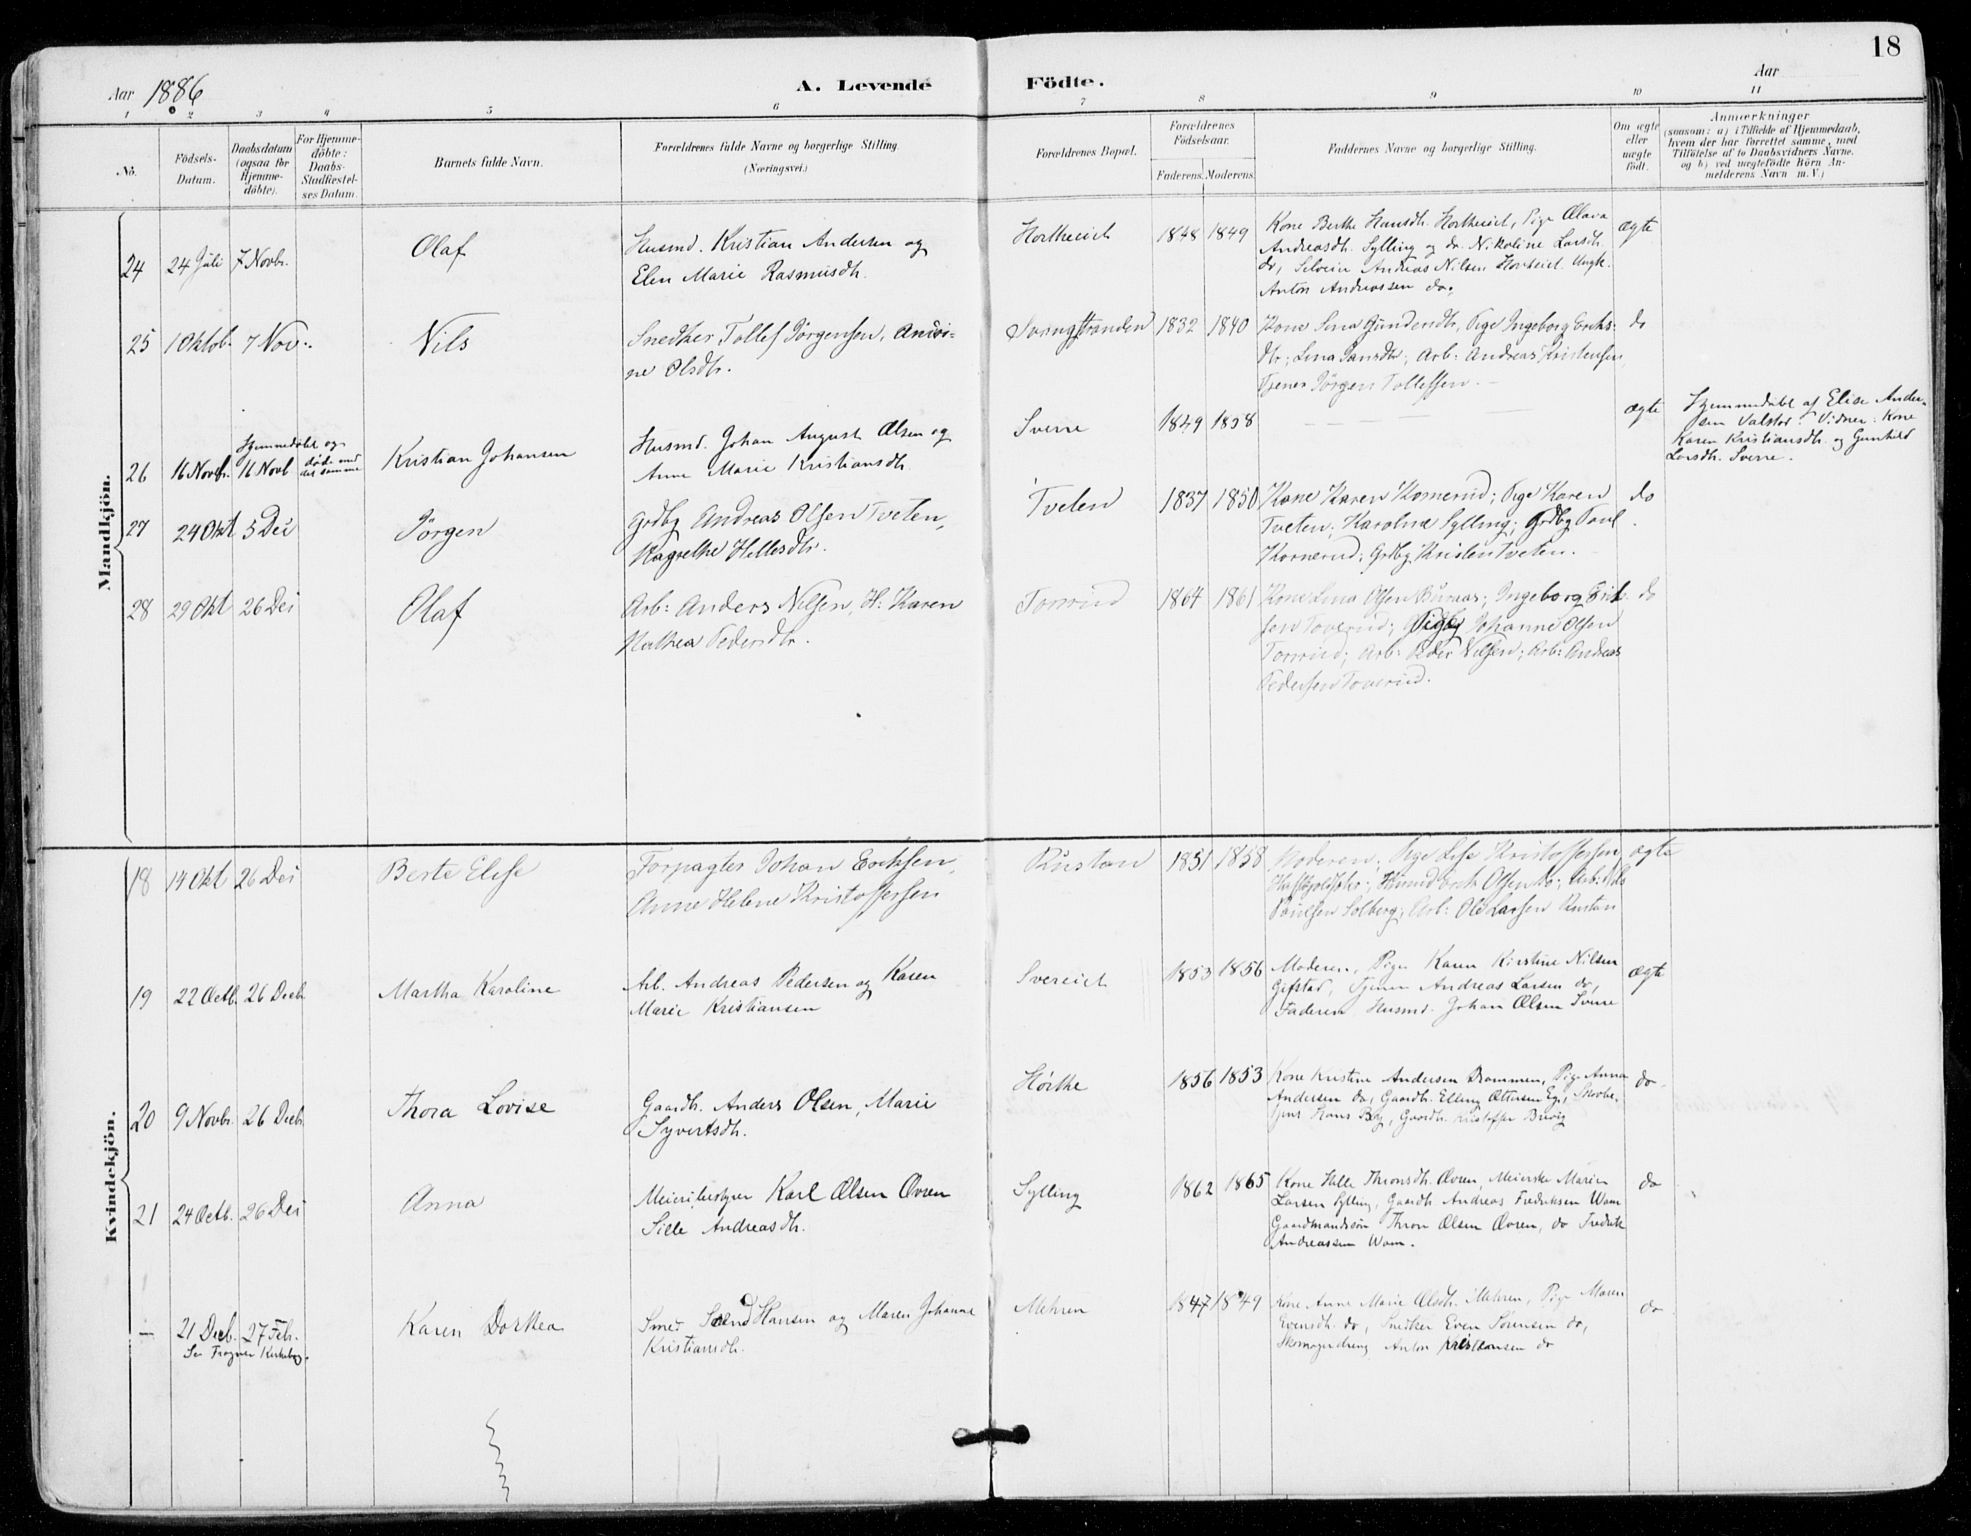 18
Aar 1886
A. Levende Födte.
Aar
1 2 3 4 5 6 7 8 9 10 11
No.
Födsels-Datum.
Daabsdatum (ogsaa for Hjemmedöbte).
For Hjemmedöbte: Daabs-Stadfæstelses Datum.
Barnets fulde Navn.
Forældrenes fulde Navne og borgerlige Stilling. (Næringsvei.)
Forældrenes Bopæl.
Forældrenes Födselsaar.
Faderens. Moderens.
Faddernes Navne og borgerlige Stilling.
Om ægte eller uægte födt.
Anmærkninger
(saasom: a) i Tilfælde af Hjemmedaab,
hvem der har forrettet samme, med
Tilföielse af to Daabsvidners Navne.
og b) ved uægtefödte Börn An-
melderens Navn m. V.)
Mandkjön.
24 24 Juli 7 Novbr. Olaf
Husmd. Kristian Andersen og
Elen Marie Rasmusdh.
Hortheeiet 1848 1849
Kone Berthe Hansdh. Hortheeiet, Pige Olava
Andreasdh. Sylling og do. Nikoline Larsdh.
do, Selveier Andreas Nilsen Horteeiet. Ungk.
Anton Andreassen do.
ægte
25 1 Oktob. 7 Nov. Nils
Snedker Tollef Jørgensen,
ne Olsdtr.
Svangstranden 1832 1840
Kone Lina Gundersdtr, Pige Ingeborg Eriks-
dtr; Lina Jansdtr; Arb: Andreas Kristensen,
Tjener Jörgen Tollefsen.
do
Hjemmedøbt og
død med
det samme
26 16 Novbr. 16 Novb Kristian Johansen
Husmd. Johan August Olsen og
Anne Marie Kristiansdh.
Sverre 1849 1858
ægte
Hjemmedøbt af Elise Ander-
sen Valstad. Vidner: Kone
Karen Kristiansdh. og Gunhild
Larsdh. Sverre.
27 24 Okt 5 Dec Jörgen
Grdbg Andreas Olsen Tveten,
Hagrethe Hellesdtr.
Tveten 1837 1850
Kone Karen Komerud; Pige Karen
Tveten; Karoline Sylling; Grdbg Paul
Kornerud; Grdbg Kristen Tveten.
do
28 29 Okt 26 Dec Olaf
Arb: Anders Nilsen, H: Karen
Mathea Pedersdtr.
Toverud 1864 1861
Kone Lina Olsen Buraas; Ingeborg Erik-
sen Toverud; Pige Johanne Olsen
Toverud; Arb: Peder Nilsen; Arb: Andreas
Pedersen Toverud.
do
Kvindekjön.
18 14 Okt 26 Dec Berte Elise
Forpagter Johan Eriksen,
Anne Helene Kristoffersen
Rustan 1851 1858
Moderen; Pige Lise Kristoffersen
Husmd Erik Olsen do; Arb: Nils
Paulsen Solberg; Arb: Ole Larsen Rustan
ægte
19 22 Octb. 26 Decb. Martha Karoline
Arb. Andreas Pedersen og Karen
Marie Kristiansen
Svereiet 1853 1856
Moderen, Pige Karen Kirstine Nilsen
Gifstad, Tjener Andreas Larsen do,
Faderen, Husmd. Johan Olsen Sverre
ægte
20 9 Novbr. 26 Decbr. Thora Lovise
Gaardb. Anders Olsen, Marie
Syvertsdh.
Hørthe 1856 1853
Kone Kristine Andersen Drammen, Pige Anna
Andersen do, Gaardb. Elling Ottersen Ege, Skrbe.
Hans Bay, Gaardb. Kristoffer Brevig
do
21 24 Octb. 26 Dec Anna
Meieribestyrer Karl Olsen Øvren
Sille Andreasdh.
Sylling 1862 1865
Kone Helle Thronsdh. Øvren, Meierske Marie
Larsen Sylling, Gaardb. Andreas Fredriksen Wam
Gaardmandssøn Thron Olsen Øvren, do Fredrik
Andreassen Wam.
do
— 21 Decb. 27 Feb. Karen Dorthea
Se Fragner Kirkebog.
Smed Hansen og Maren Johanne
Kristiansdh.
Mehren 1847 1849
Kone Anne Marie Olsdh. Mehren, Pige Maren
Evensdh. do, Snedker Even Sørensen do,
Skomagerdreng Anton Kristiansen do
do